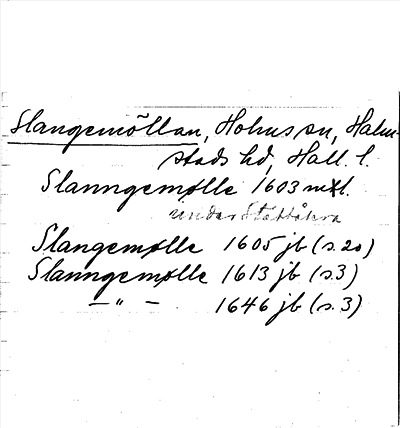 Slangemöllan, Holms sn, Halm-
stads hd, Hall. l.
Slanngemølle 1603 mtl.
under Slättåkra
Slangemølle 1605 jb (s. 20)
Slanngemølle 1613 jb (s. 3)
— " — 1646 jb (s. 3)